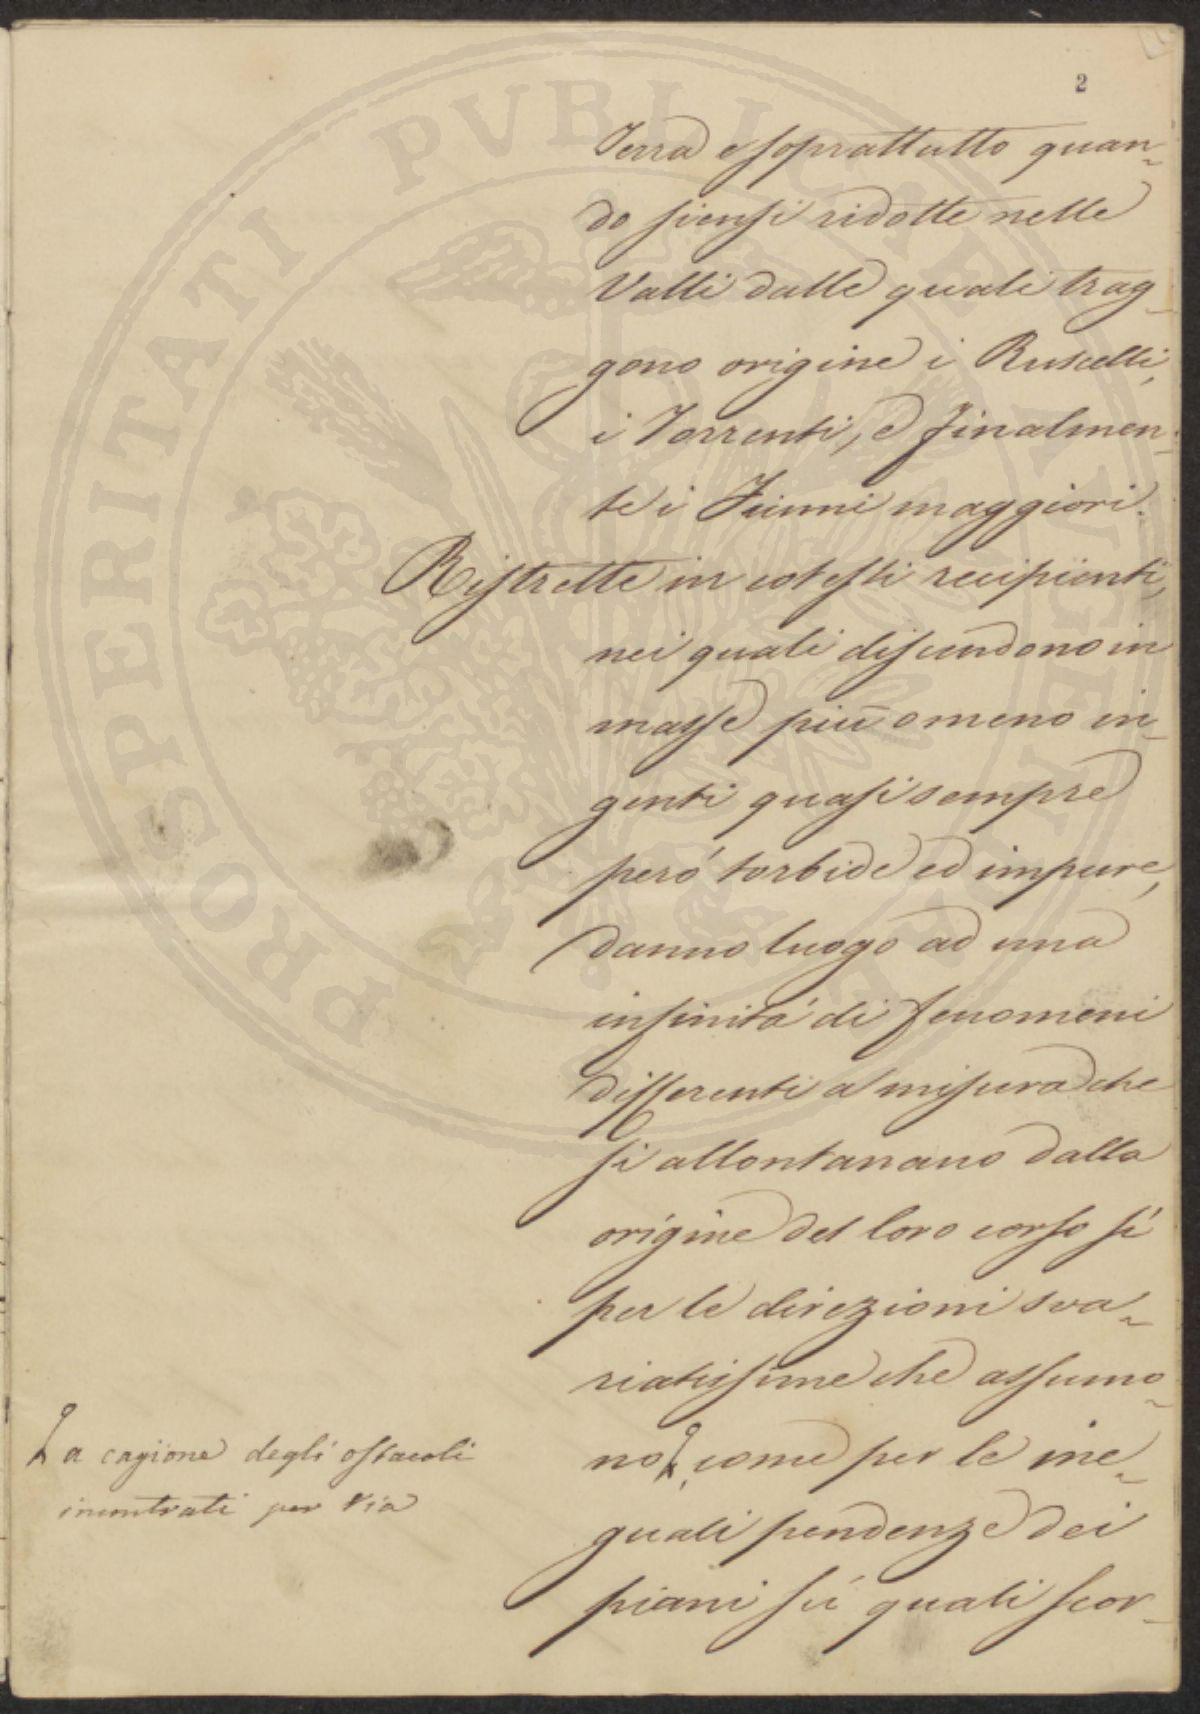 2
Terra e soprattutto quan-
do siensi ridotte nelle
Valli dalle quali trag-
gono origine i Ruscelli,
i Torrenti, e finalmen-
te i Fiumi maggiori.
Ristrette in cotesti recipienti,
nei quali discendono in
masse più o meno in-
genti quasi sempre
però torbide ed impure,
danno luogo ad una
infinità di fenomeni
differenti a misura che
si allontanano dalla
origine del loro corso sì
per le direzioni sva-
riatissime che assumo-
no come per le ine-
guali pendenze dei
piani sù quali scor-
a cagione degli ostacoli
incontrati per via
PROSPERITATI PVBLICAE AVGENDAE